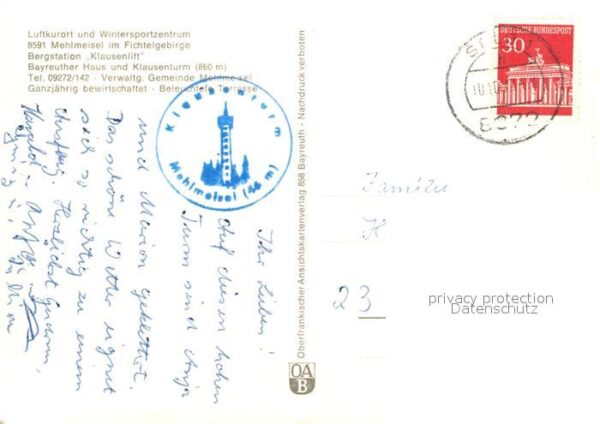 Luftkurort und Wintersportzentrum
8591 Mehlmeisel im Fichtelgebirge
Bergstation „Klausenlift"
Bayreuther Haus und Klausenturm (860 m)
Tel. 09272/142 · Verwaltg. Gemeinde Mehlmeisel
Ganzjährig bewirtschaftet · Beleuchtete Terrasse
Klausenturm
Mehlmeisel (44 m)
Ihr Lieben!
Auf diesen hohen
Turm sind Anja
und Marion geklettert.
Das schöne Wetter eignet
sich so richtig zu einem
Herzlichst
Oberfränkischer Ansichtskartenverlag 858 Bayreuth - Nachdruck verboten
OA
B
DEUTSCHE BUNDESPOST
30
Familie
H
23
privacy protection
Datenschutz